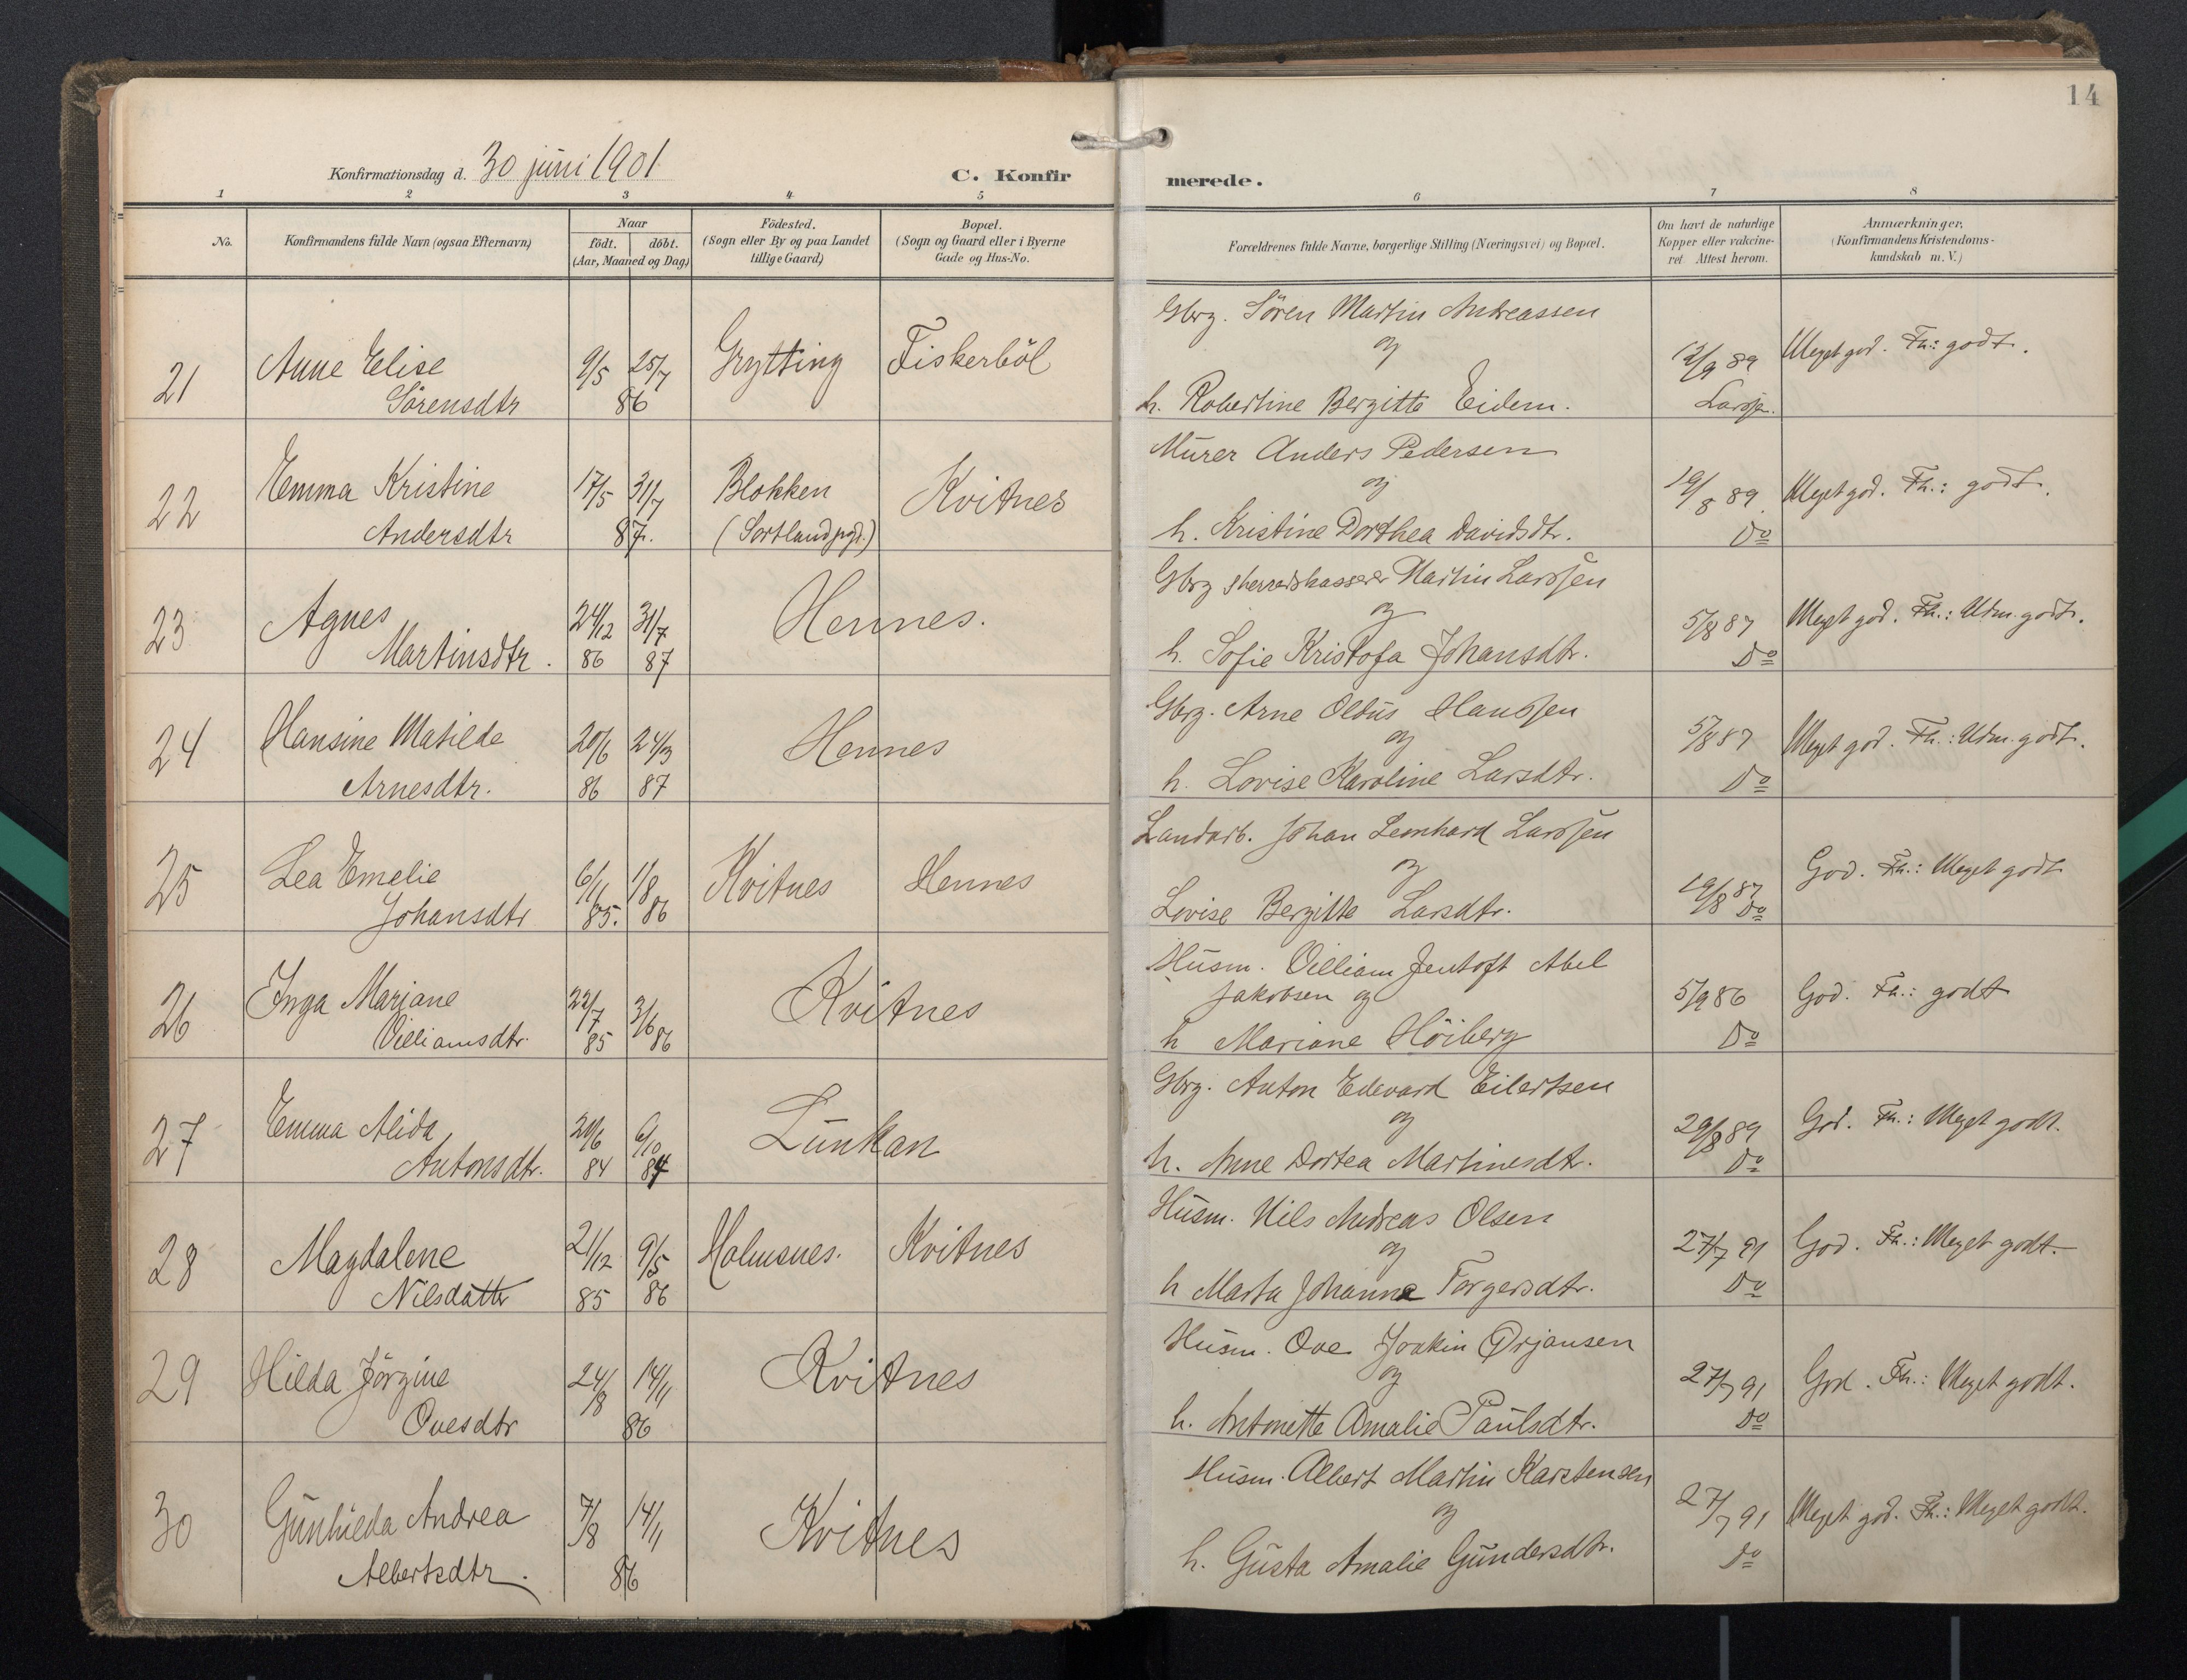 14
Konfirmationsdag d. 30 juni 1901
C. Konfirmerede.
1 2 3 4 5 6 7 8
No.
Konfirmandens fulde Navn (ogsaa Efternavn)
Naar
födt. döbt.
(Aar, Maaned og Dag)
Födested.
(Sogn eller By og paa Landet
tillige Gaard)
Bopæl.
(Sogn og Gaard eller i Byerne
Gade og Hus-No.
Forældrenes fulde Navne, borgerlige Stilling (Næringsvei) og Bopæl.
Om havt de naturlige
Kopper eller vakcine-
ret Attest herom.
Anmærkninger,
(Konfirmandens Kristendoms-
kundskab m. V.)
Gbrg. Sören Martin Andreassen
og
21 Anne Elise 9/5 25/7 Grytting Fiskerböl 12/9 89 Meget god. Fh.: godt.
Sörensdtr 86 h. Robertine Bergitte Eidem. Larssen.
Murer Anders Pedersen
og
22 Emma Kristine 17/5 31/7 Blokken Kvitnes 19/8 89 Meget god. Fh.: godt.
Andersdtr 87. (Sortland pgd.) h. Kristine Dorthea Davidsdtr. Do
Gbrg & herredskasserer Martin Larssen
og
23 Agnes 24/12 31/7 Hennes. 5/8 87 Meget god. Fh.: Udm. godt.
Martinsdtr. 86 87 h. Sofie Kristofa Johansdtr. Do
Gbrg. Arne Oldus Hanssen
og
24 Hansine Matilde 20/6 24/3 Hennes 5/8 87 Meget god. Fh.: Udm. godt.
Arnesdtr. 86 87 h. Lovise Karoline Larsdtr. Do
Landarb. Johan Leonhard Larssen
og
25 Lea Emelie 6/11 1/8 Kvitnes Hennes 19/8 87 God. Fh.: Meget godt
Johansdtr 85. 86 Lovise Bergitte Larsdtr. Do
Husm. Villiam Jentoft Abel
Jakobsen og
26 Inga Mariane 22/7 3/6 Kvitnes 5/9 86 God. Fh.: godt
Villiamsdtr. 85 86 h Mariane Höiberg Do
Gbrg. Anton Edevard Eilertsen
og
27 Emma Alida 20/6 6/10 Lunkan 29/8 89 God. Fh.: Meget godt.
Antonsdtr. 84 84 h. Anne Dortea Martinesdtr. Do
Husm. Nils Andreas Olsen
og
28 Magdalene 21/12 9/5 Holmsnes. Kvitnes 27/7 91 God. Fh.: Meget godt.
Nilsdatter 85 86 h Marta Johanna Torgersdtr. Do
Husm. Ove Joakin Ørjansen
og
29 Hilda Jörgine 24/8 14/11 Kvitnes 27/7 91 God. Fh.: Meget godt.
Ovesdtr 86 h. Antonette Amalie Paulsdtr. Do
Husm. Albert Martin Karstensen
og
30 Gunhilda Andrea 7/8 14/11 Kvitnes 27/7 91 Meget god. Fh.: Meget godt.
Albertsdtr. 86 h. Gusta Amalie Gundersdtr. Do